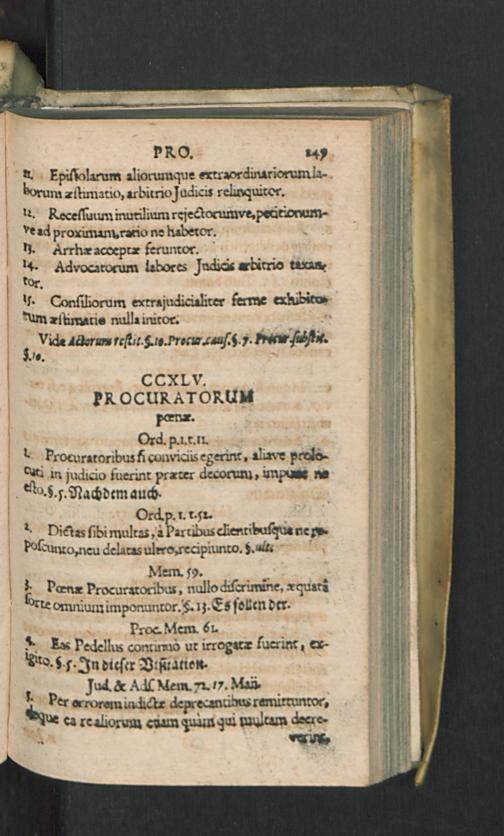 PRO. 249
11. Epistolarum aliorumque extraordinariorum la-
borum æstimatio, arbitrio Judicis relinquitor.
12. Recessuum inutilium rejectorumve, petitionum-
ve ad proximam, ratio ne habetor.
13. Arrhæ acceptæ feruntor.
14. Advocatorum labores Judicis arbitrio taxan-
tor.
15. Consiliorum extrajudicialiter ferme exhibito-
rum æstimatio nulla initor.
Vide Actorum restit. §. 10. Procur. caus. §. 7. Procur. substit.
§. 10.
CCXLV.
PROCURATORUM
pœnæ.
Ord. p. 1. t. 11.
1. Procuratoribus si conviciis egerint, aliave prolo-
cuti in judicio fuerint præter decorum, impune ne
esto. §. 5. Nachdem auch.
Ord. p. 1. t. 52.
2. Dictas sibi multas, à Partibus clientibusque ne re-
poscunto, neu delatas ultro, recipiunto. §. ult.
Mem. 59.
3. Pœnæ Procuratoribus, nullo discrimine, æquatâ
sorte omnium imponuntor. §. 13. Es sollen der.
Proc. Mem. 61.
4. Eas Pedellus continuò ut irrogatæ fuerint, ex-
igito. §. 5. In dieser Visitation.
Jud. & Ads. Mem. 72. 17. Maii.
5. Per errorem indictæ deprecantibus remittuntor,
deque ea re aliorum etiam quàm qui multam decre-
verint,